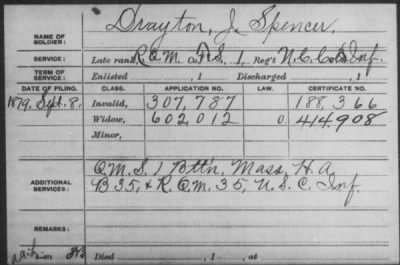 Drayton, J. Spencer.
NAME OF SOLDIER:
SERVICE: Late rank, R.Q.M. Co. F.S., 1, Reg't N.C. Col'd Inf.
TERM OF SERVICE: Enlisted , 1 Discharged , 1
DATE OF FILING. CLASS. APPLICATION NO. LAW. CERTIFICATE NO.
1879, Sept. 8. Invalid, 307,787 188,366
Widow, 602,012 0 414,908
Minor,
Q.M.S. 1 Batt'n, Mass, H.A.
ADDITIONAL SERVICES: B 35, & R.Q.M. 35, U.S.C. Inf.
REMARKS:
Died , 1 , at